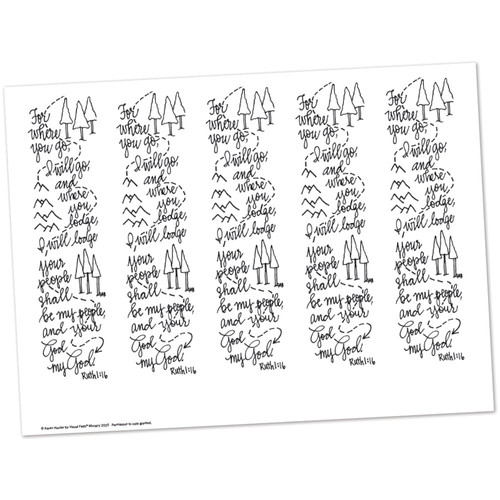 For
where
you go,
I will go,
and
where
you
lodge,
I will lodge
your
people
shall
be my people,
and your
God
my God.
Ruth 1:16
For
where
you go,
I will go,
and
where
you
lodge,
I will lodge
your
people
shall
be my people,
and your
God
my God.
Ruth 1:16
For
where
you go,
I will go,
and
where
you
lodge,
I will lodge
your
people
shall
be my people,
and your
God
my God.
Ruth 1:16
For
where
you go,
I will go,
and
where
you
lodge,
I will lodge
your
people
shall
be my people,
and your
God
my God.
Ruth 1:16
For
where
you go,
I will go,
and
where
you
lodge,
I will lodge
your
people
shall
be my people,
and your
God
my God.
Ruth 1:16
Permission to copy granted.